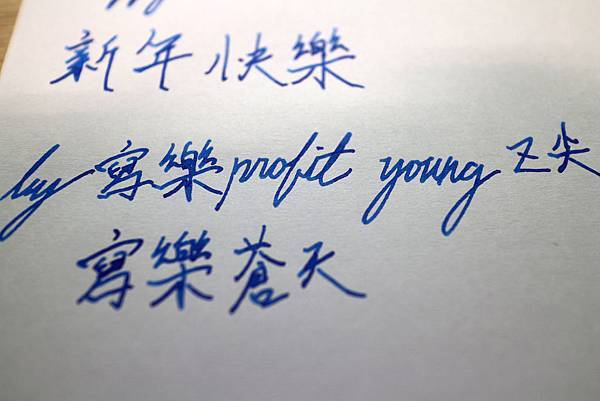 新年快樂
by 寫樂 profit young Z尖
寫樂蒼天